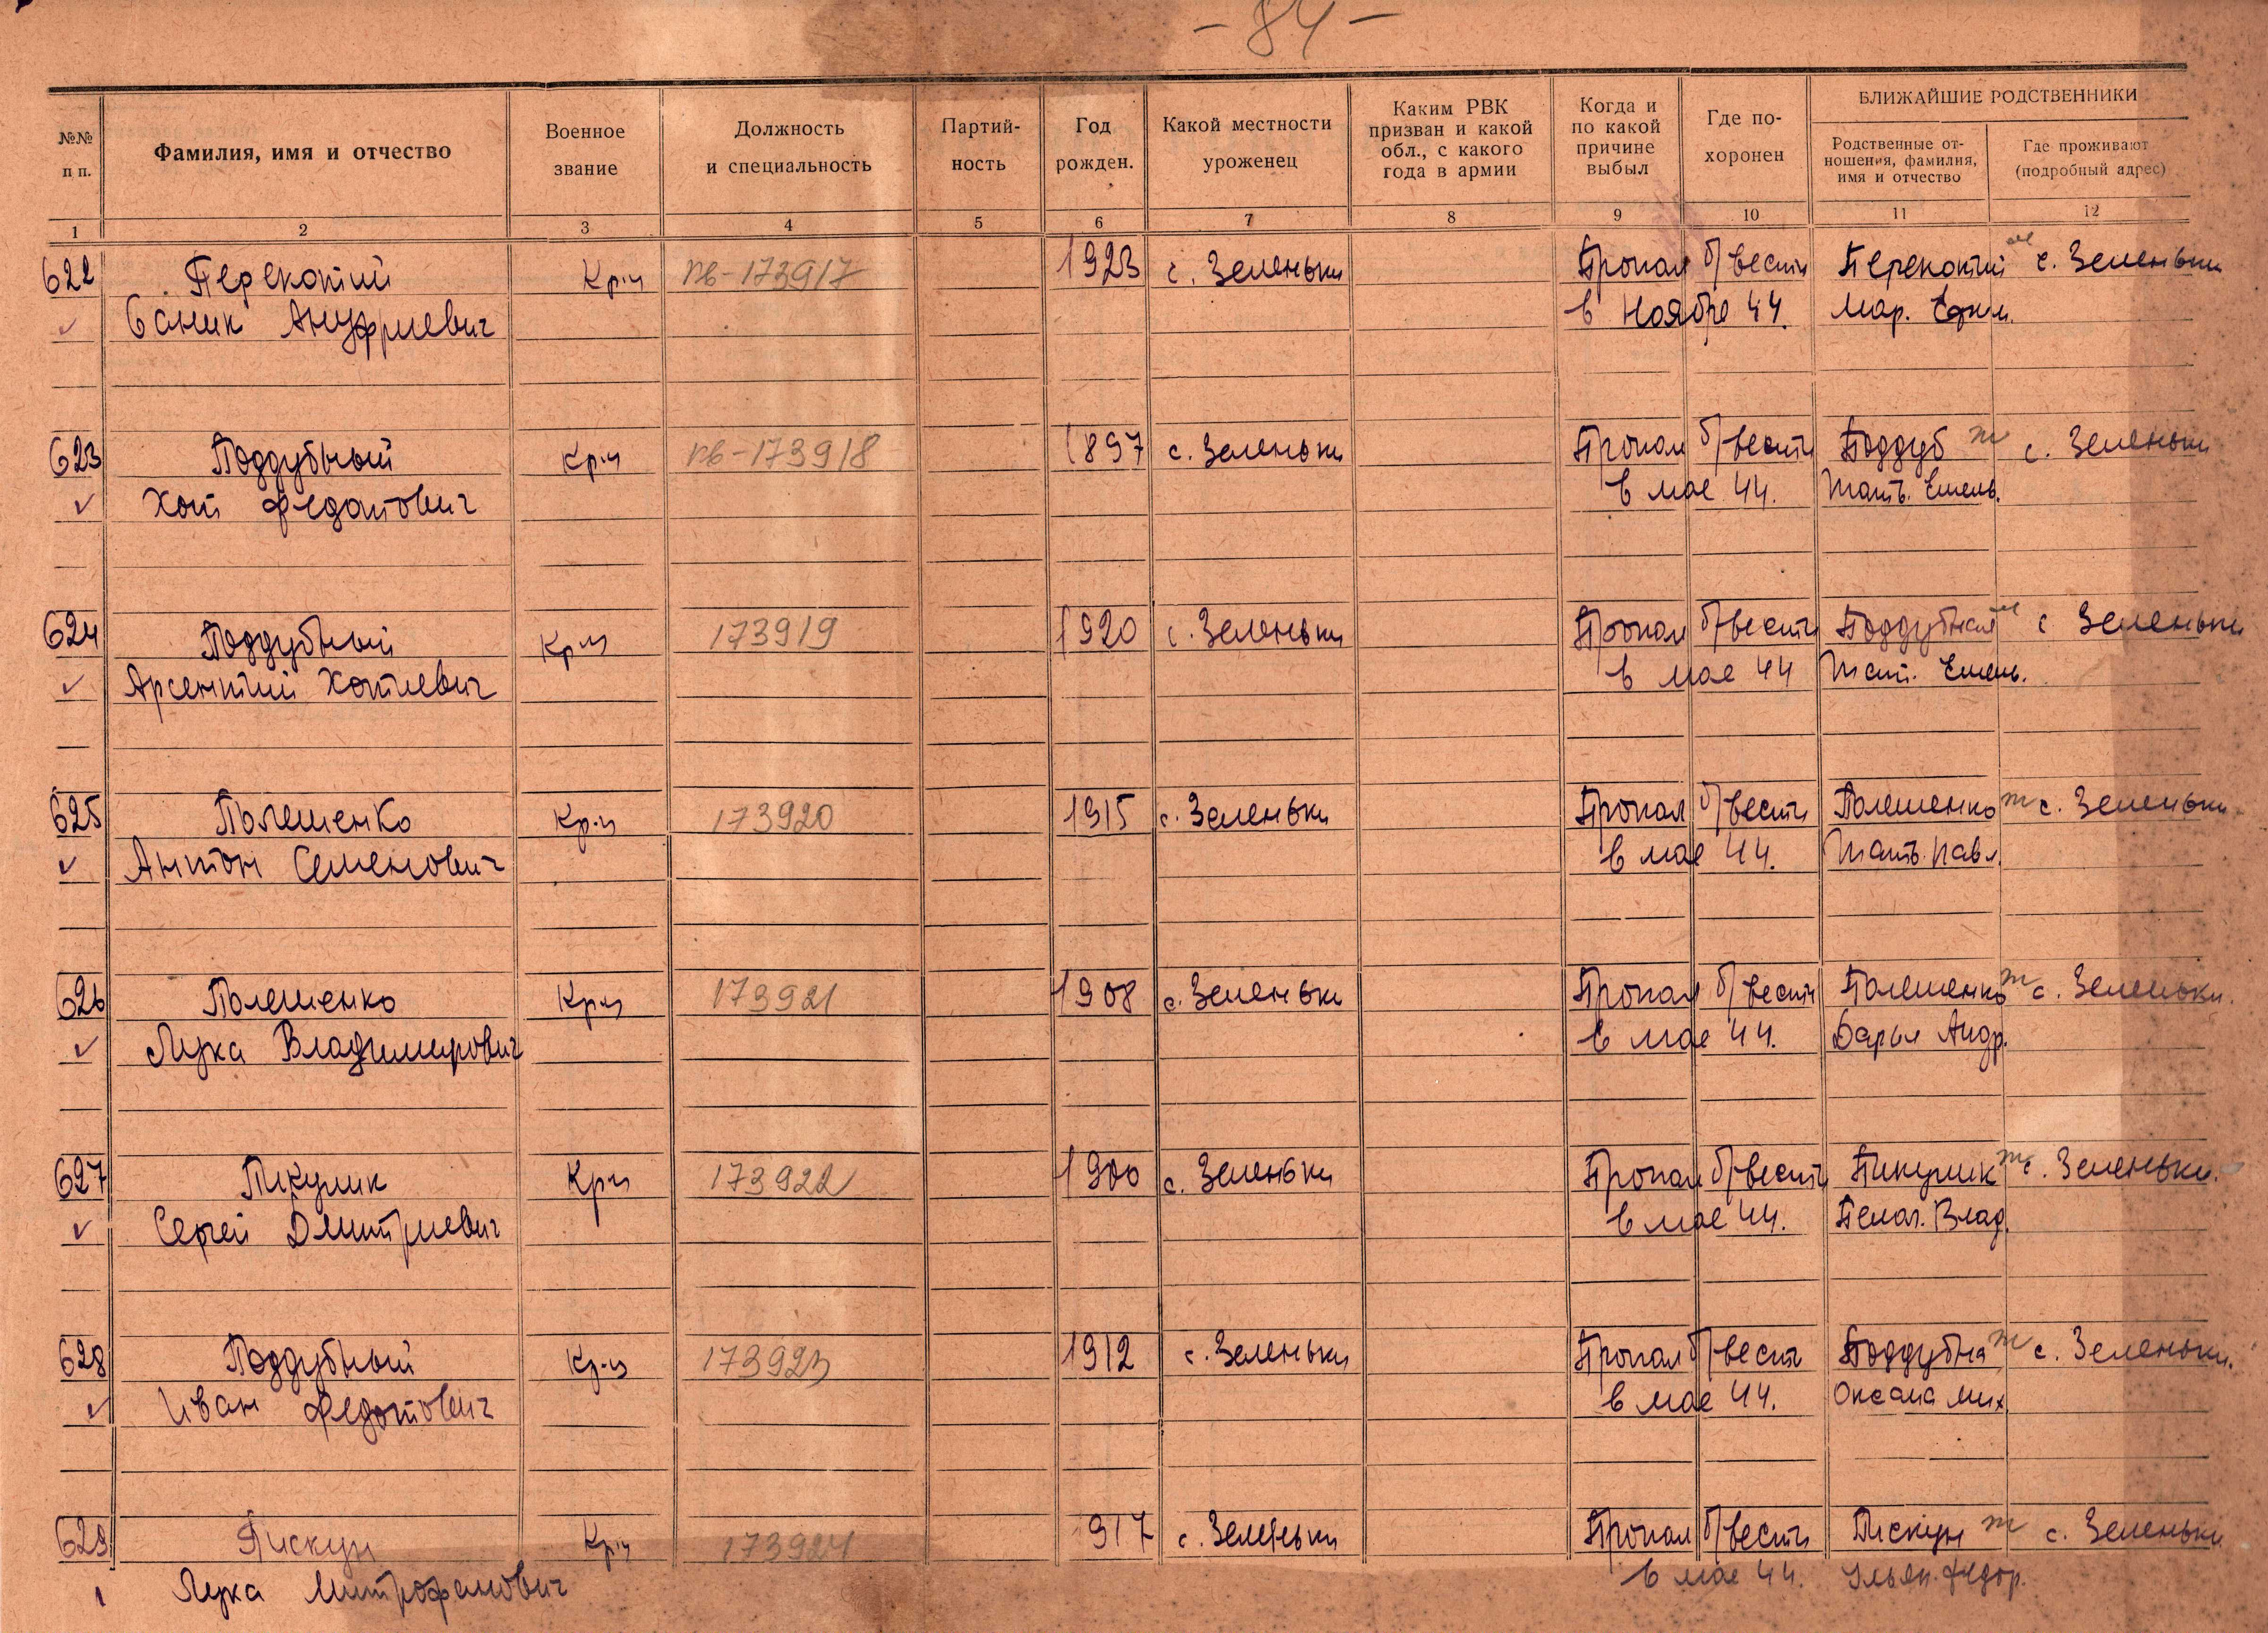 - 84 -
БЛИЖАЙШИЕ РОДСТВЕННИКИ
№№ п п.
Фамилия, имя и отчество
Военное звание
Должность и специальность
Партий- ность
Год рожден.
Какой местности уроженец
Каким РВК призван и какой обл., с какого года в армии
Когда и по какой причине выбыл
Где по- хоронен
Родственные от- ношения, фамилия, имя и отчество
Где проживают (подробный адрес)
1 2 3 4 5 6 7 8 9 10 11 12
622 Перекотий Кр-ц пв-173917 1923 с. Зеленьки Пропал б/вести Перекотий м с. Зеленьки
Ануфриевич в Ноябре 44. Мар.
623 Поддубный Кр-ц пв-173918 1897 с. Зеленьки Пропал б/вести Поддуб ж с. Зеленьки
Хот Федотович в мае 44. Тать. Емель.
624 Поддубный Кр-ц 173919 1920 с. Зеленьки Пропал б/вести Поддубная м с Зеленьки
Арсентий Хотиевич в мае 44 Тат. Емель.
625 Полешенко Кр-ц 173920 1915 с. Зеленьки Пропал б/вести Полешенко ж с. Зеленьки
Антон Семенович в мае 44. Тать. Павл.
626 Полешенко Кр-ц 173921 1908 с. Зеленьки Пропал б/вести Полешенко ж с. Зеленьки.
Лука Владимирович в мае 44. Дарья Андр.
627 Пикулик Кр-ц 173922 1900 с. Зеленьки Пропал б/вести Пикулик ж с. Зеленьки.
Сергей Дмитриевич в мае 44. Пелаг. Влад.
628 Поддубный Кр-ц 173923 1912 с. Зеленьки Пропал б/вести Поддубна ж с. Зеленьки.
Иван Федотович в мае 44. Оксана Мих.
629 Пискун Кр-ц 173924 1917 с. Зеленьки Пропал б/вести Пискун ж с. Зеленьки
Лука Митрофанович в мае 44. Ульян. Федор.